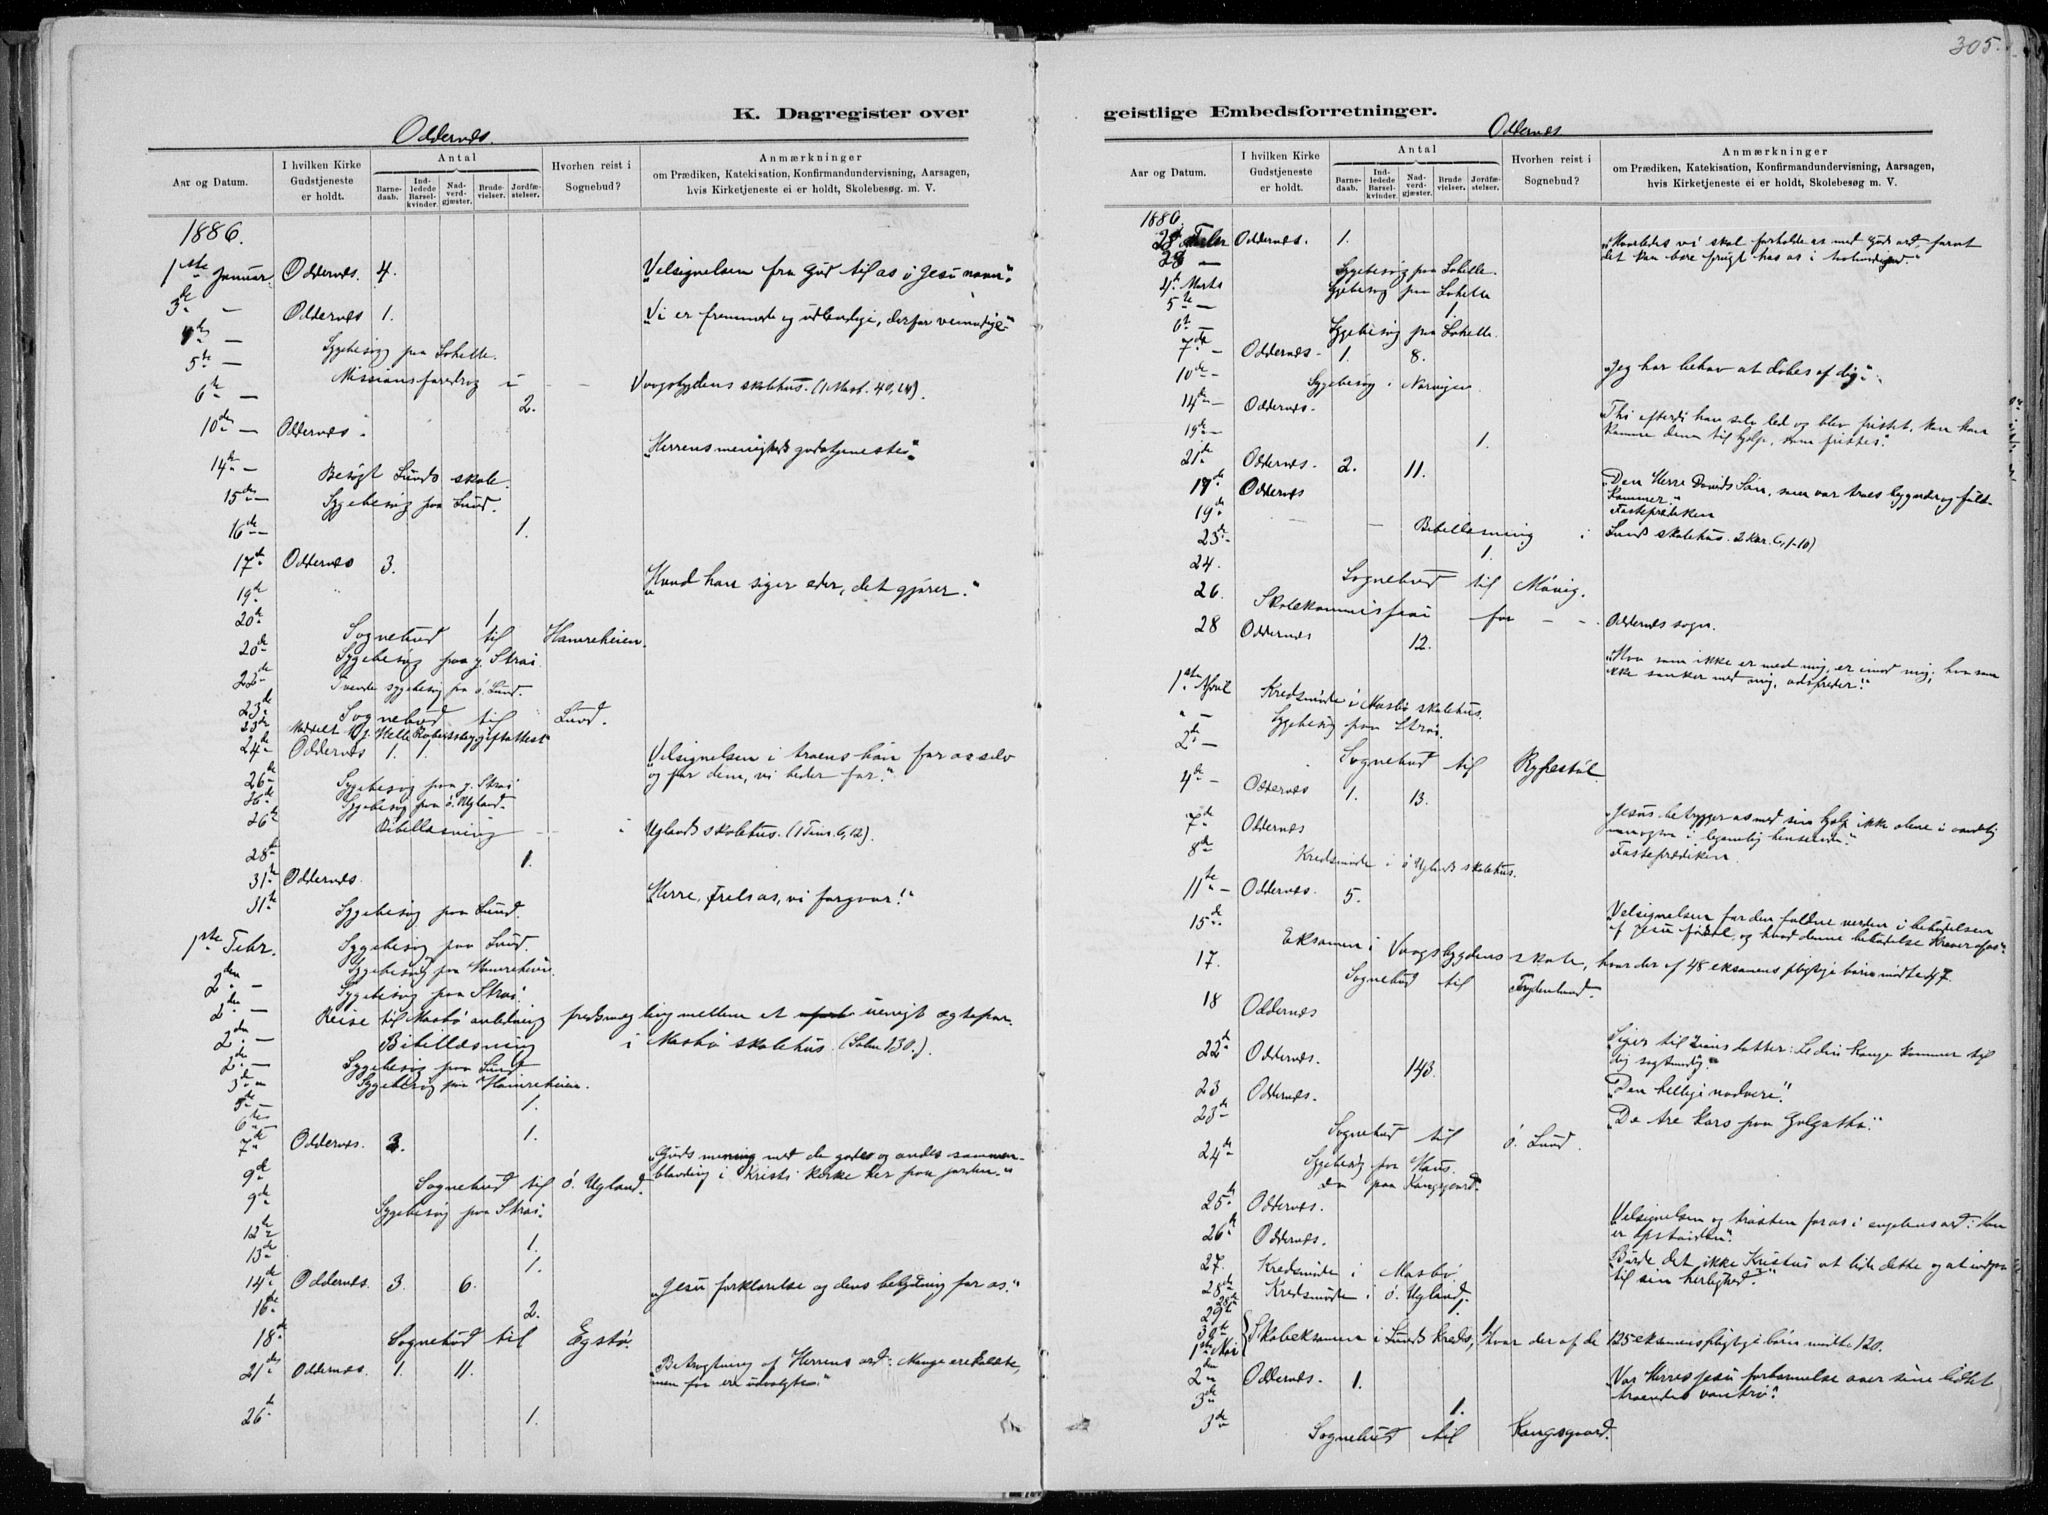 305.
K. Dagregister over
Oddernes.
Aar og Datum.
I hvilken Kirke Gudstjeneste er holdt.
Antal
Barnedaab.
Indledede Barselkvinder.
Nadverdgjæster.
Brudevielser.
Jordfæstelser.
Hvorhen reist i Sognebud?
Anmærkninger
om Prædiken, Katekisation, Konfirmandundervisning, Aarsagen,
hvis Kirketjeneste ei er holdt, Skolebesøg m. V.
1886.
1ste Januar. Oddernes. 4. "Velsignelsen fra Gud til os i Jesu navn".
3de — Oddernes 1. "Vi er fremmede og udlændige, derfor
4de — Sygebesøg paa
5te — Missionsforedrag i — — Vaagsbygdens skolehus.
6te — 2.
10de — Oddernes. "Herrens menigheds gudstjeneste"
14de — Besøgt Lunds skole.
15de — Sygebesøg paa Lund.
16de — 1.
17de Oddernes 3. "Hvad han siger eder, det gjører."
19de
20de 1
20de Sognebud til Hamreheien.
22de Sygebesøg paa y. Strai.
Tvende sygebesøg pa ø. Lund.
23de Sognebud til Lund.
23de
24de Oddernes 1. 1. "Velsignelsen i troens bøn for os selv
og for dem, vi beder for."
26de Sygebesøg paa y. Strai
26de Sygebesøg paa ø. Ugland.
26de Bibellæsning — i Uglands skolehus. (1 Tim. 6, 12).
28de 1.
31te Oddernes. "Herre, frels os, vi forgaar!"
31te Sygebesøg paa Lund.
1ste Febr. Sygebesøg paa Lund.
2den — Sygebesøg paa Hamreheien.
2den — Sygebesøg paa Strai.
2den — Reise til Mosbø anledning fredsmægling mellem et uenigt ægtepar.
2den — Bibellæsning i Mosbø skolehus. (Salm 130.).
Sygebesøg paa Lund
3de Sygebesøg paa Hamreheien.
5te — 1.
6te
7de Oddernes. 3. 1. "Guds mening med de godes og ondes sammenblanding i Kristi kirke her paa jorden."
9de Sognebud til ø. Ugland.
9de Sygebesøg paa Strai.
12te 1.
13de 1.
14de Oddernes. 3. 6. "Jesu forklarelse og dens betydning for os."
16de 2.
18de Sognebud til Egstø.
21de Oddernes. 1. 11. Betragtning af Herrens ord: Mange ere kaldte,
men faa ere udvalgte."
26de 1.
geistlige Embedsforretninger.
Oddernes
Aar og Datum.
I hvilken Kirke Gudstjeneste er holdt.
Antal
Barnedaab.
Indledede Barselkvinder.
Nadverdgjæster.
Brudevielser.
Jordfæstelser.
Hvorhen reist i Sognebud?
Anmærkninger
om Prædiken, Katekisation, Konfirmandundervisning, Aarsagen,
hvis Kirketjeneste ei er holdt, Skolebesøg m. V.
1886
28 Febr Oddernes. 1. "Hvorledes vi skal forholde os med Guds ord, forat
det kan bære frugt hos os i
28 — Sygebesøg paa
4de Marts Sygebesøg paa
5te — 1.
6te — Sygebesøg paa
7de — Oddernes. 1. 8. "Jeg har behov at døbes af dig".
10de — Sygebesøg i Narvigen.
14de — Oddernes. "Thi efterdi han selv led og blev fristet, kan han
komme dem til hjelp, som fristes."
19de — 1.
21de Oddernes. 2. 11. "Den Herre Davids Søn,
17de Oddernes Fasteprædiken
19de
23de — — Bibellæsning i Lunds skolehus. 2 Kor. 6, 1-10)
24. 1.
26. Sognebud til Møvig.
Skolekommission for — — Oddernes sogn.
28 Oddernes 12. "Hvo som ikke er med mig, er imod mig; hvo som
ikke sanker med mig, adspreder."
1ste April Kredsmøde i Mosbø skolehus.
" — Sygebesøg paa Strai.
2de — Sognebud til Ryfestøl
4de — Oddernes 1. 13. "Jesus betrygger os med sin hjelp ikke alene i aandelig
men ogsaa i legemlig henseende."
7de Oddernes Fasteprædiken
8de Kredsmøde i ø Uglands skolehus.
11te — Oddernes. 5. "Velsignelsen for den faldne verden i
af Jesu fødsel, og hvad denne
15de Eksamen i Vaagsbygdens skole, hvor der af 48 eksamenspligtige børn mødte 47.
17. Sognebud til
18 Oddernes "Siger til Zions datter: Se din konge kommer til
dig sagtmodig."
22de Oddernes. 143. "Den hellige nadvere."
23 Oddernes. "De tre kors paa Golgatha."
23de Sognebud til ø. Lund.
24de Sygebesøg paa Haus.
do paa Kongsgaard.
25de Oddernes. "Velsignelsen og trøsten for os i engelens ord: Han
er opstanden".
26de Oddernes. "Burde det ikke Kristus at lide dette og at indgaa
til sin herlighed?"
27. Kredsmøde i Mosbø.
28de Kredsmøde i ø. Ugland.
29de 1.
30te
1ste Mai Skoleeksamen i Lunds kreds, hvor der af de 125 eksamenspligtige børn mødte 120.
2den Oddernes. 1. "Vor Herres Jesu forbarmelse over sine lidet
troendes vantro".
3de 1.
3de Sognebud til Kongsgaard.